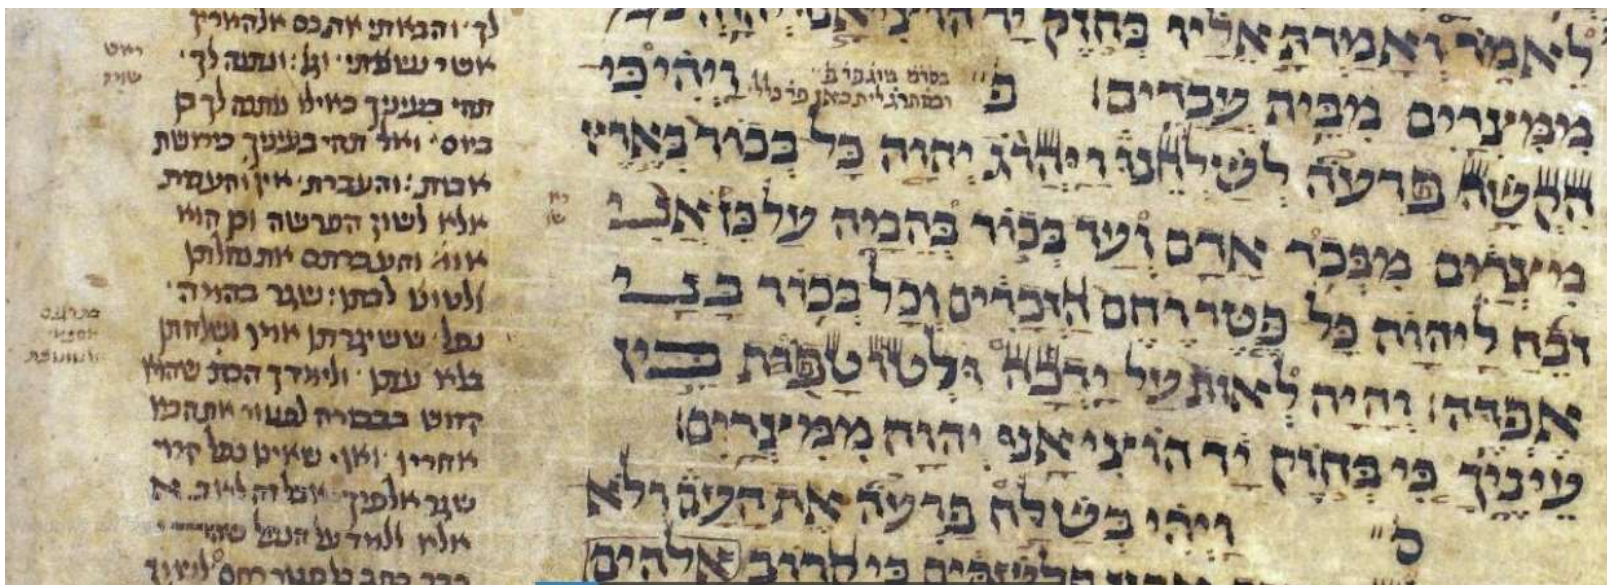 לאמר ואמרת אליו בחזק יד הוציאנו יהוה
ממצרים מבית עבדים פ ויהי כי
הקשה פרעה לשלחנו ויהרג יהוה כל בכור בארץ
מצרים מבכר אדם ועד בכור בהמה על כן אני
זבח ליהוה כל פטר רחם הזכרים וכל בכור בני
אפדה והיה לאות על ידכה ולטוטפת בין
עיניך כי בחזק יד הוציאנו יהוה ממצרים
ס ויהי בשלח פרעה את העם ולא
ארץ פלשתים כי קרוב אלהים
לך והבאתי אתכם אל הארץ
אשר נשאתי וג' ונתנה לך
תהי בעיניך כאילו נתנה לך בו
ביום ואל תהי בעיניך כירושת
אבות והעברת אין והעברת
אלא לשון הפרשה וכן הוא
או' והעברתם את נחלתו
לבתו שגר בהמה
נפל ששיגרתו אמו ושלחתו
בלא עתו ולימדך הכת' שהוא
קדוש בבכורה לפטור את הבא
אחריו ואף שאינו נפל קרוי
שגר אלפיך אבל זה לא בא
אלא ללמד על הנפל שהרי
כבר כתב כל פטר רחם